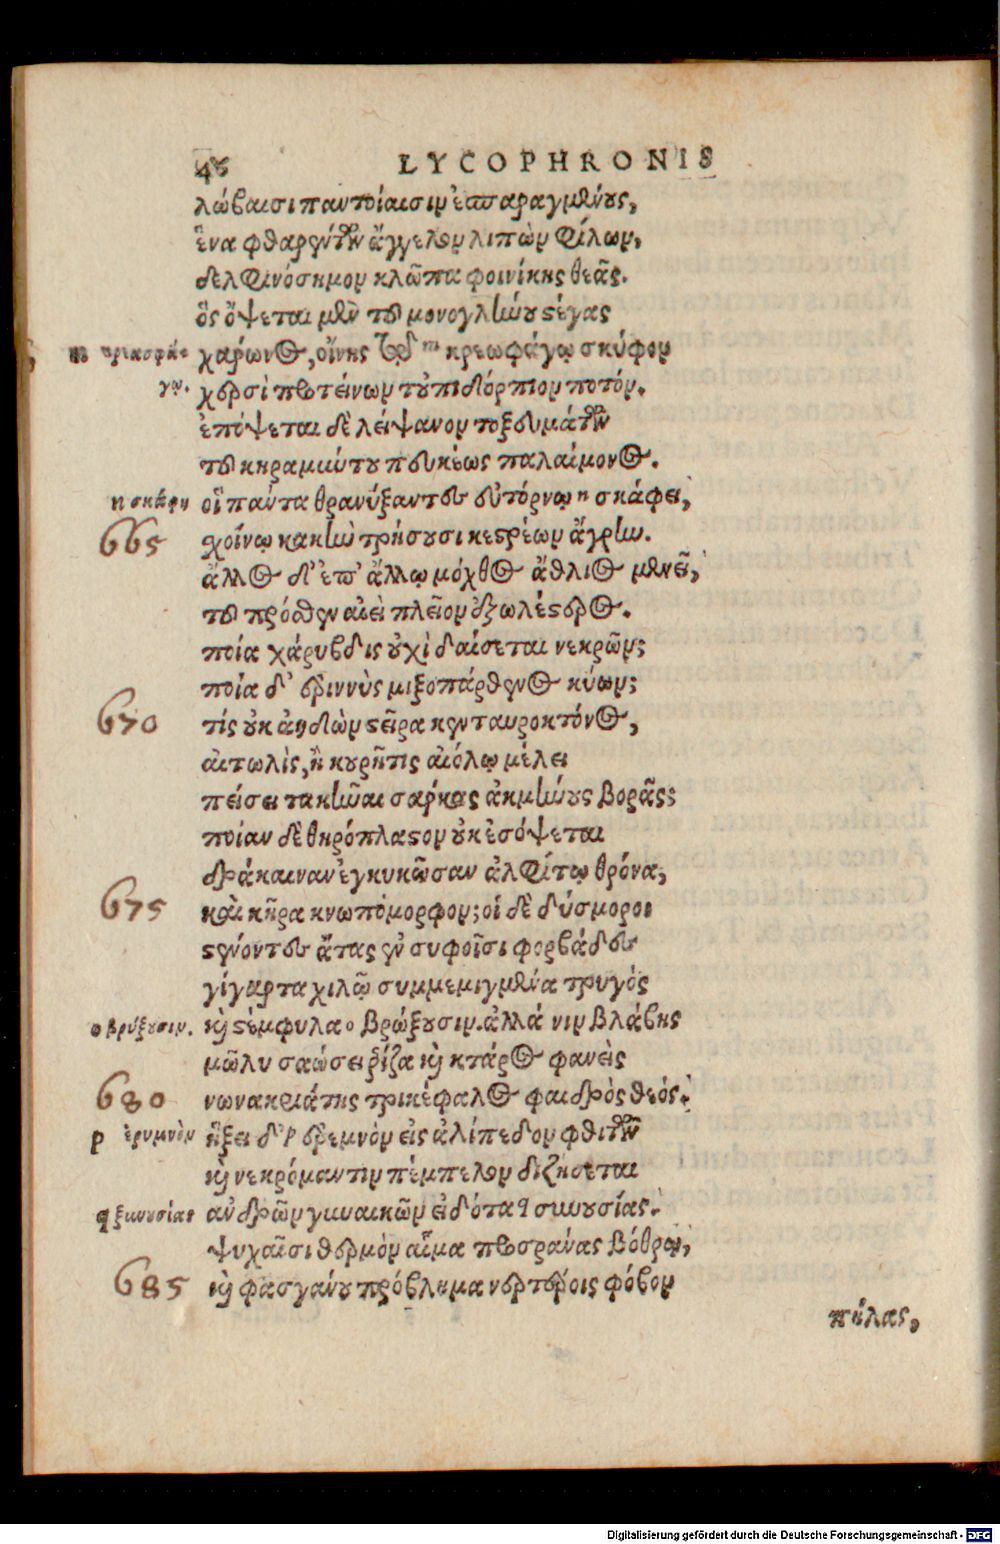 46 LYCOPHRONIS
λώβαισι παντοίαισιν ἐσπαραγμένους,
ἕνα φθαρέντων ἄγγελον λιπὼν φίλων,
δελφινόσημον κλῶπα φοινίκης θεᾶς.
ὃς ὄψεται μὲν τοῦ μονογλήνου στέγας
m χάρωνος, οἴνης τῷδε m κρεωφάγῳ σκύφον
γῳ. χερσὶ προτείνων τοὐπιδόρπιον ποτόν.
ἐπόψεται δὲ λείψανον τοξευμάτων
τοῦ κηραμύντου πευκέως παλαίμονος.
n σκάφη οἳ πάντα θρανύξαντες εὐτόρνῳ n σκάφει,
665 σχοίνῳ κακὴν τρήσουσι κεστρέων ἄγρην.
ἄλλος δ' ἐπ' ἄλλῳ μόχθος ἄθλιος μενεῖ,
τοῦ πρόσθεν αἰεὶ πλεῖον ἐξωλέστερος.
ποία χάρυβδις οὐχὶ δαίσεται νεκρῶν;
ποία δ' ἐριννὺς μιξοπάρθενος κύων;
670 τίς οὐκ ἀηδὼν στεῖρα κενταυροκτόνος,
αἰτωλὶς, ἢ κουρῆτις αἰόλῳ μέλει
πείσει τακῆναι σάρκας ἀκμήνους βορᾶς;
ποίαν δὲ θηρόπλαστον οὐκ ἐσόψεται
δράκαιναν ἐγκυκῶσαν ἀλφίτῳ θρόνα,
675 καὶ κῆρα κνωπόμορφον; οἱ δὲ δύσμοροι
στένοντες ἄτας ἐν συφοῖσι φορβάδες
γίγαρτα χιλῷ συμμεμιγμένα τρυγὸς
ο βρύξουσιν. καὶ στέμφυλα ο βρώξουσιν. ἀλλά νιν βλάβης
μῶλυ σαώσει ῥίζα καὶ κτάρος φανεὶς
680 νωνακριάτης τρικέφαλος φαιδρὸς θεός.
p ἐρυμνὸν ἥξει δ' p ἐρεμνὸν εἰς ἀλίπεδον φθιτῶν
καὶ νεκρόμαντιν πέμπελον διζήσεται
q ξυνουσίας ἀνδρῶν γυναικῶν εἰδότα q συνουσίας.
ψυχαῖσι θερμὸν αἷμα προσράνας βόθρῳ,
685 καὶ φασγάνου πρόβλημα νερτέροις φόβον
πήλας,
Digitalisierung gefördert durch die Deutsche Forschungsgemeinschaft - DFG